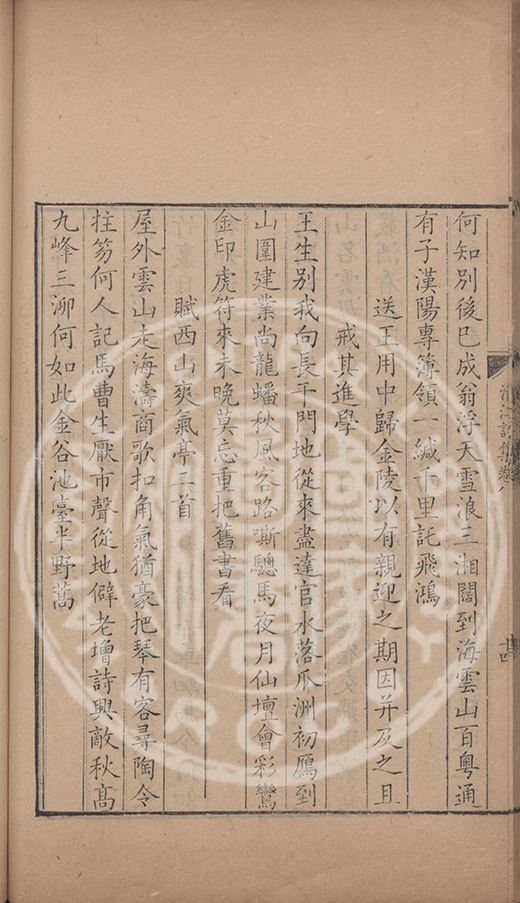 何知別後已成翁浮天雪浪三湘闊到海雲山百粵通
有子漢陽專簿領一緘千里託飛鴻
送王用中歸金陵以有親迎之期因并及之且
戒其進學
王生別我向長干門地從來盡達官水落瓜洲初鴈到
山圍建業尚龍蟠秋風客路嘶驄馬夜月仙壇會彩鸞
金印虎符來未晚莫忘重把舊書看
賦西山爽氣亭二首
屋外雲山走海濤商歌扣角氣猶豪把琴有客尋陶令
拄笏何人記馬曹生厭市聲從地僻老增詩興敵秋高
九峰三泖何如此金谷池臺半野蒿
清江詩集卷八
十四